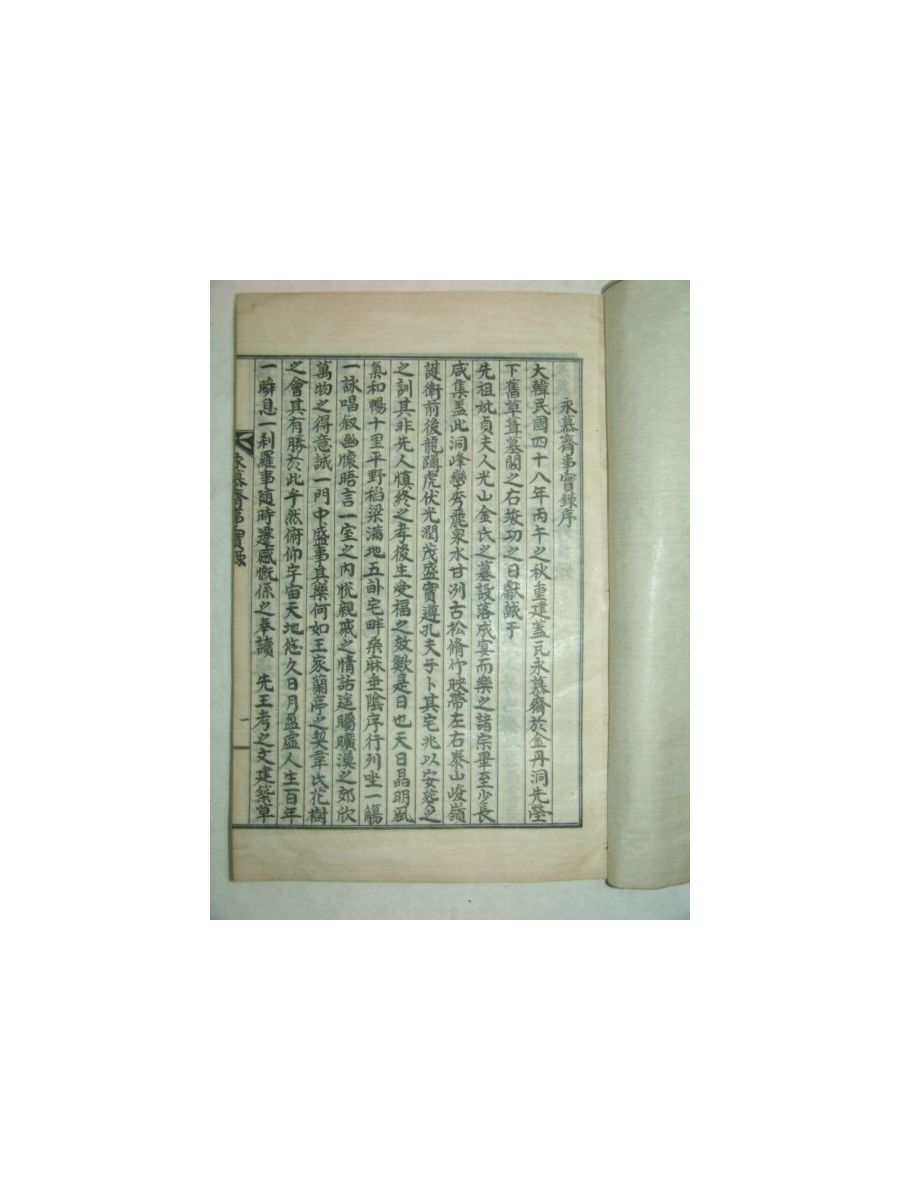 永慕齋事實錄序
大韓民國四十八年丙午之秋重建蓋瓦永慕齋於金丹洞先塋
下舊草葺墓閣之右竣功之日獻誠于
先祖妣貞夫人光山金氏之墓設落成宴而樂之諸宗畢至少長
咸集盖此洞峰巒秀麗泉水甘冽古松脩竹映帶左右泰山峻嶺
護衛前後龍蹲虎伏光潤茂盛實遵孔夫子卜其宅兆以安
之訓其非先人愼終之孝後生受福之效歟是日也天日晶明風
氣和暢十里平野稻粱滿地五卦宅畔桑麻垂陰序行列坐一觴
一詠唱叙幽懷晤言一室之內悅親戚之情話遠矚曠漠之郊欣
萬物之得意誠一門中盛事其樂何如王家蘭亭之契韋氏花樹
之會其有勝於此乎然俯仰宇宙天地悠久日月盈虛人生百年
一瞬息一刹羅事随時遷感慨係之奉讀 先王考之文建築草
永慕齋事實錄
一